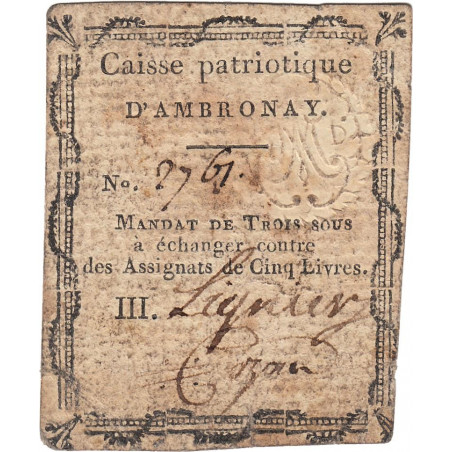 Caisse patriotique
D'AMBRONAY.
No. 2761.
MANDAT DE TROIS SOUS
a échanger contre
des Assignats de Cinq Livres.
III.